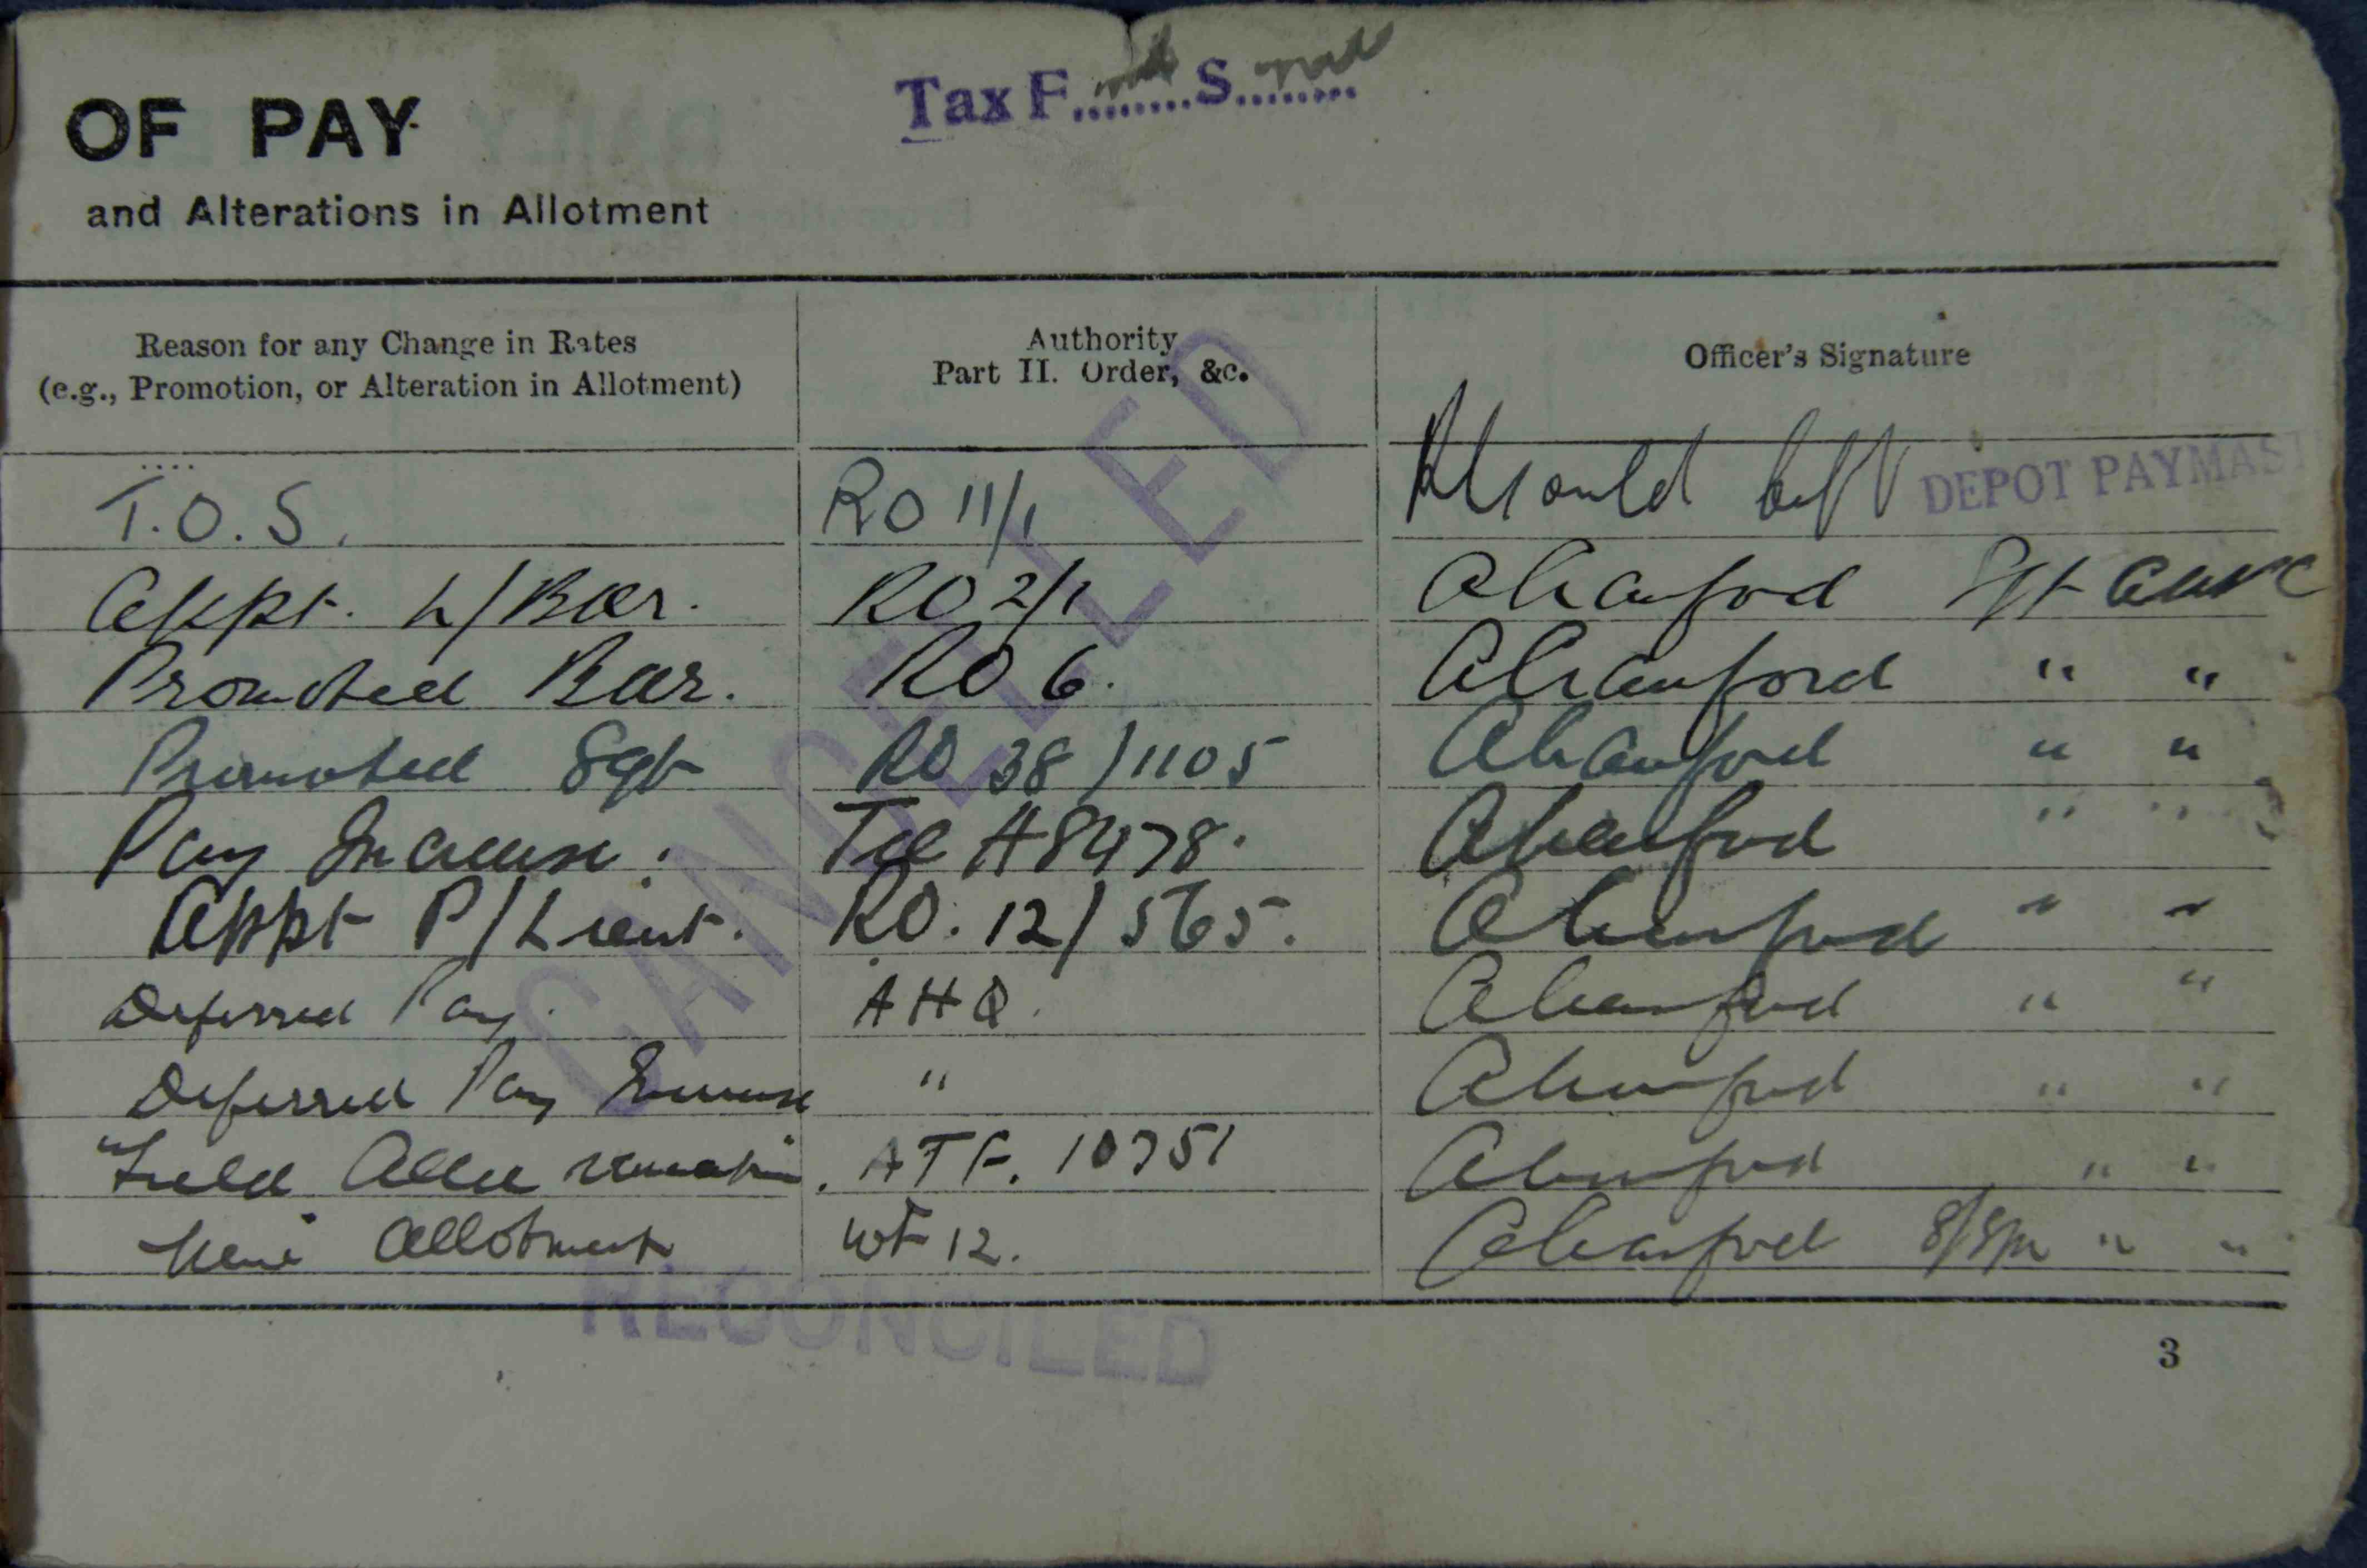 Tax F........S.........
OF PAY
and Alterations in Allotment
Reason for any Change in Rates
(e.g., Promotion, or Alteration in Allotment)
Authority
Part II. Order, &c.
Officer's Signature
T.O.S. RO 11/1 Capt DEPOT PAYMAST
Appt. L/Bdr. RO 2/1
Promoted Bdr. RO 6. " "
Promoted Sgt RO 38/1105 " "
Pay Increase. Tel A8478. " "
Appt P/Lieut. RO. 12/565. " "
Deferred Pay. AHQ. " "
Deferred Pay Increase " " "
Field Allce ATF. 10751 " "
New Allotment WF 12. " "
CANCELLED
RECONCILED
3